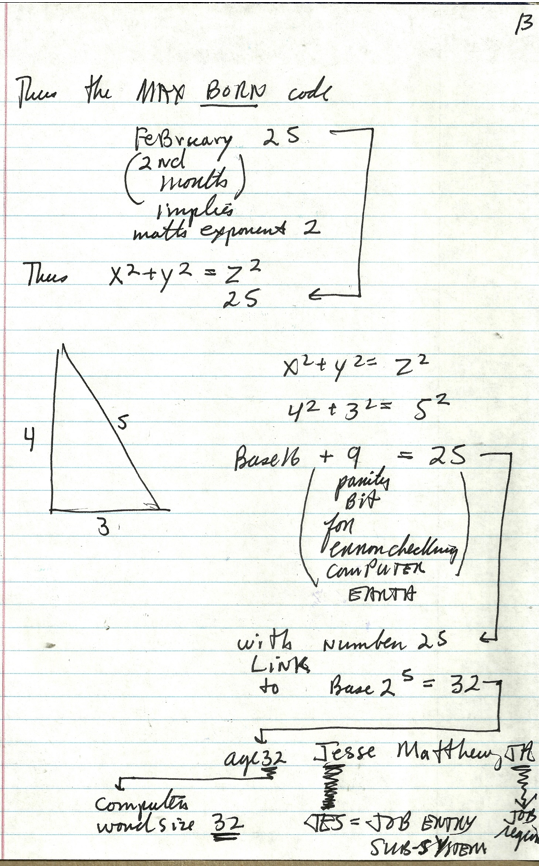 13
Thus the MAX BORN code
FeBruary 25
(2nd
months)
implies
maths exponent 2
Thus x² + y² = z²
25
x² + y² = z²
4² + 3² = 5²
4
5
3
Base16 + 9 = 25
(parity
Bit
for
errorchecking
COMPUTER
EARTH)
with Number 25
LINKS
to Base 2⁵ = 32
age 32 Jesse Matthew, JR
computers
word size 32
JES = JOB ENTRY
SUB-SYSTEM
JOB
region